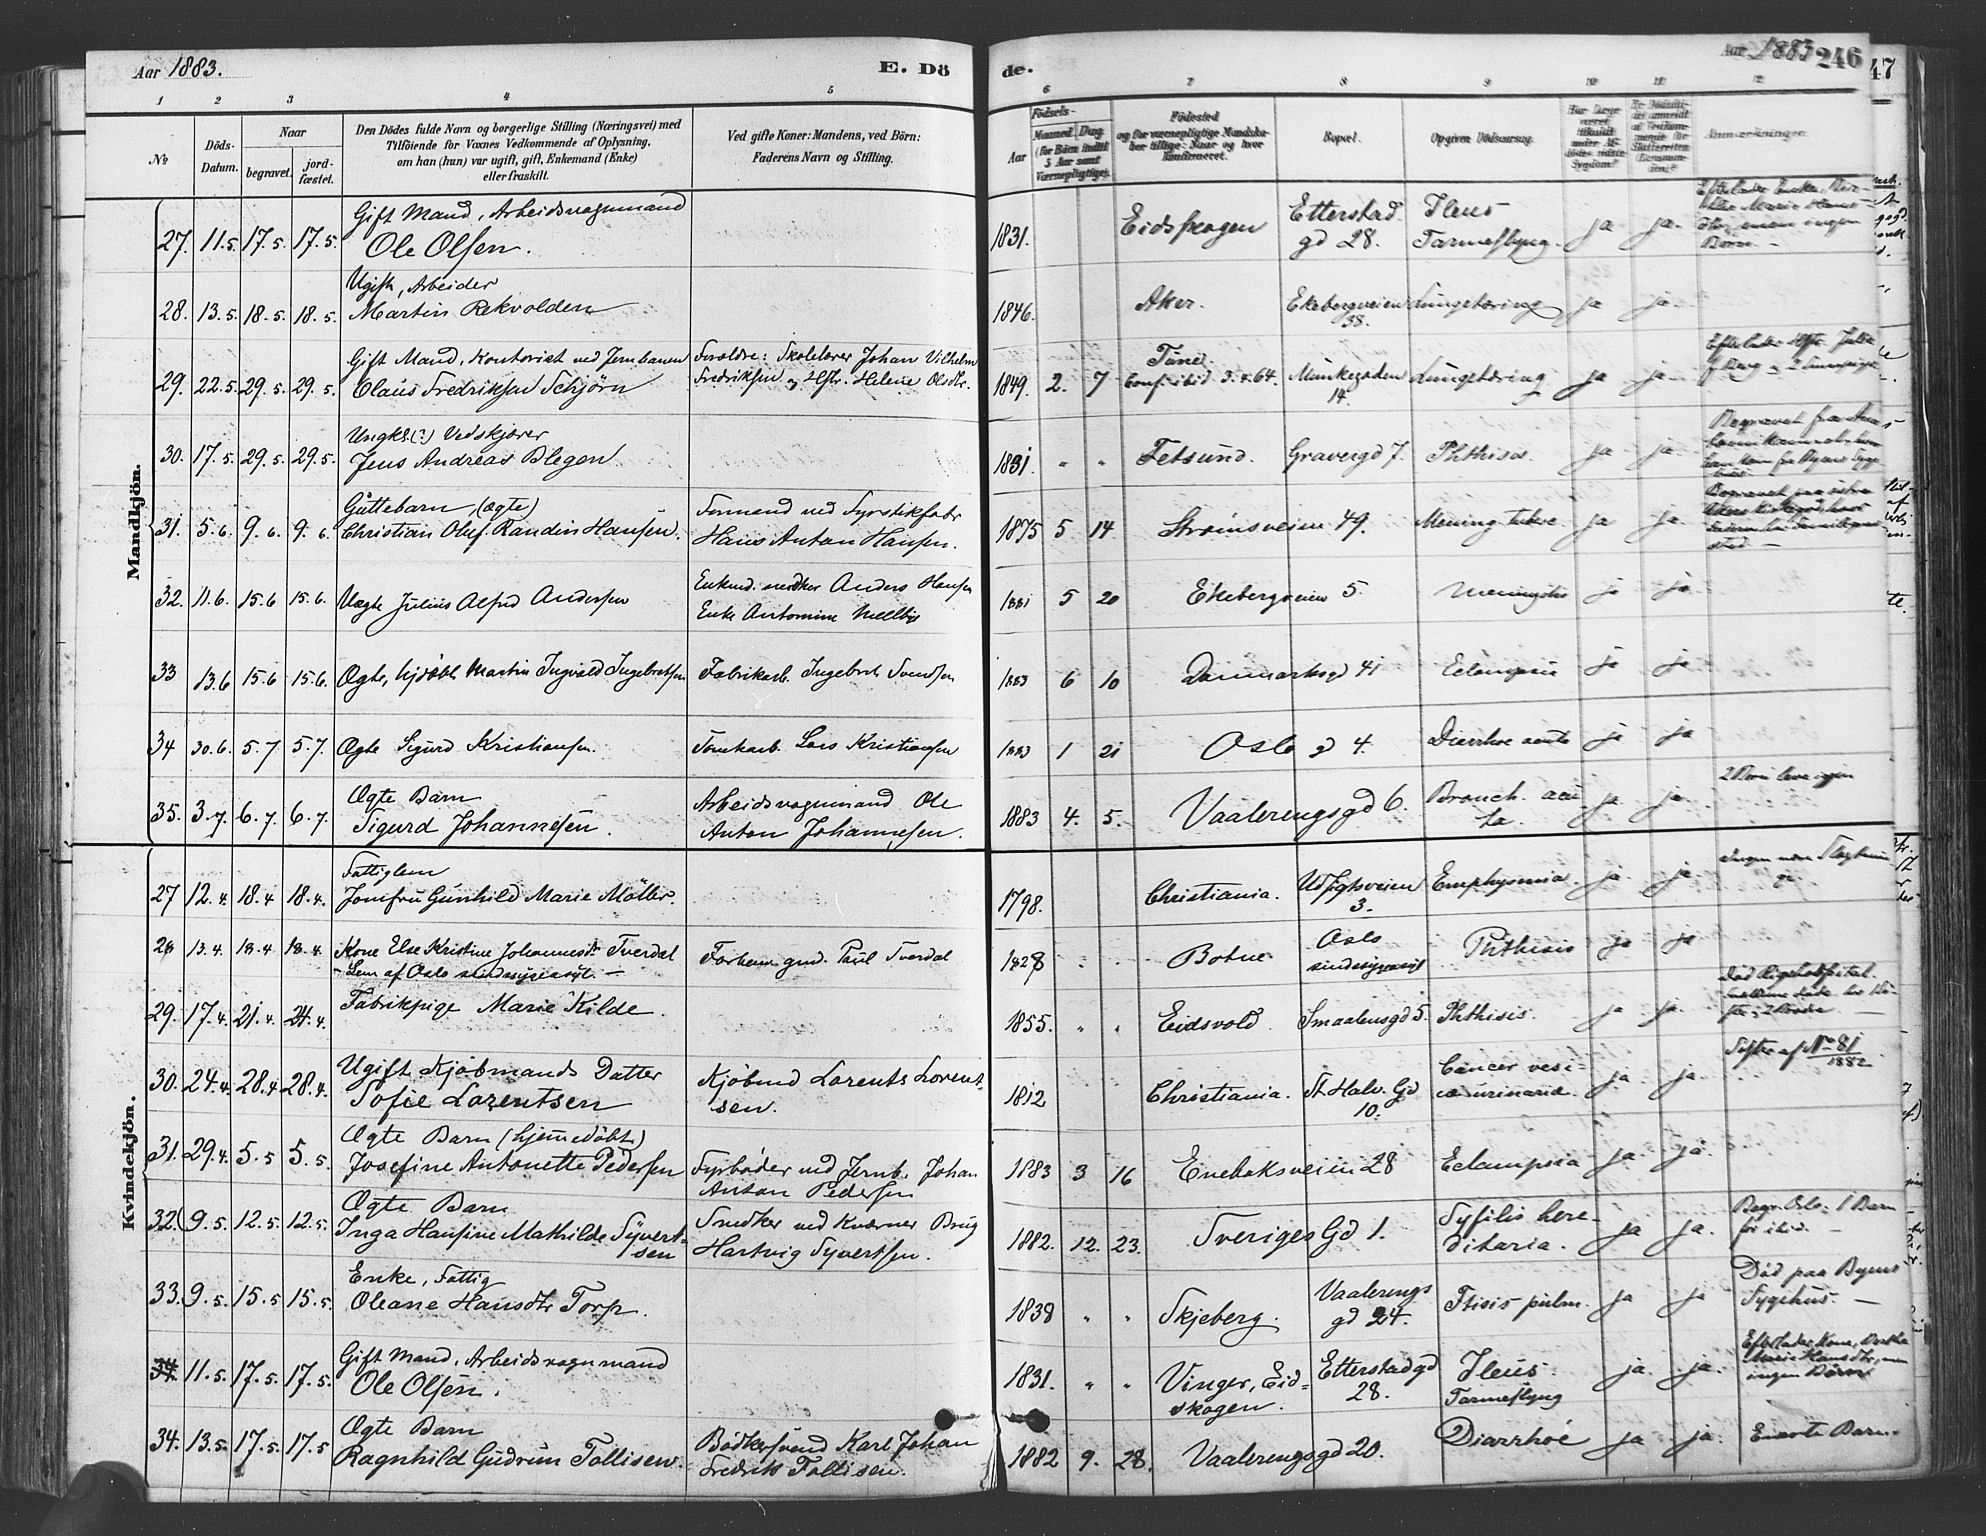 Aar 1883.
E. Dö
de.
Aar 1883
246
47
1 2 3 4 5
6 7 8 9 10 11 12
№
Döds-
Datum.
Naar
begravet.
jord-
fæstet.
Den Dödes fulde Navn og borgerlige Stilling (Næringsvei) med
Tilföiende for Voxnes Vedkommende af Oplysning,
om han (hun) var ugift, gift, Enkemand (Enke)
eller fraskilt.
Ved gifte Koner: Mandens, ved Börn:
Faderens Navn og Stilling.
Födsels-
Aar
Maaned. Dag.
(for Börn indtil
5 Aar samt
Værnepligtige).
Födested
og for værnepligtige Mandska-
ber tillige: Naar og hvor
konfirmeret.
Bopæl.
Opgiven Dödsaarsag.
Har Læge
været
tilkaldt
under Af-
dödes sidste
Sygdom?
Anmærkninger.
Mandkjön.
27. 11.5. 17.5. 17.5. Gift Mand, Arbeidsvognmand
Ole Olsen.
1831. Eidskogen Etterstad
gd 28. Ileus
Tarmeslyng. ja ja.
28. 13.5. 18.5. 18.5. Ugift, Arbeider
Martin Rekvolden
1846. Aker. Ekebergveien
38. Lungetæring ja ja.
29. 22.5. 29.5. 29.5. Gift Mand, Kontorist ved Jernbanen
Claus Fredriksen Schjörn
Forældre: Skolelærer Johan Vilhelm
Fredriksen og Hstr. Helene Olsdtr.
1849. 2. 7 Tune
Conf. ibid 3.4.64. Munkegaden
14. Lungetæring ja ja.
30. 17.5. 29.5. 29.5. Ungk.(?) Vedskjærer
Jens Andreas Blegen
1831. " " Fetsund. Gravergd 7. Phthisis ja ja.
31. 5.6. 9.6. 9.6. Guttebarn, (ægte)
Christian Oluf Randin Hansen.
Formand ved Fyrstikfabr
Hans Anton Hansen.
1875 5 14 Strömsveien 49. Mening. tuberc ja ja.
32. 11.6. 15.6 15.6. Uægte Julius Alfred Andersen
Enkmd. snedker Anders Hansen
Enke Antomine Mellbye
1881 5 20 Ekebergveien 5. Meningitis ja ja.
33 13.6 15.6 15.6. Ægte, hjdöbt Martin Ingvald Ingebretsen Fabrikarb. Ingebret Svendsen
1883 6 10 Danmarksgd 41 Eclampsia ja ja
34 30.6. 5.7 5.7. Ægte Sigurd Kristiansen. Tomtearb. Lars Kristiansen
1883 1 21 Oslo gd 4. Diarrhoe acuta ja ja
35. 3.7. 6.7. 6.7. Ægte Barn
Sigurd Johannesen.
Arbeidsvognmand Ole
Anton Johannesen.
1883 4. 5. Vaalerengsgd 6. Bronch. acu-
ta. ja ja. 2 Börn leve igjen
Kvindekjön.
27 12.4 18.4 18.4. Fattiglem
Jomfru Gunhild Marie Möller.
1798. Christiania. Udsigtsveien
3. Emphysema. ja. ja. Ingen nære Slægtnin-
ge
28 13.4. 18.4 18.4 Kone Else Kristine Johannesdtr Tverdal
- Lem af Oslo sindssygeasyl. - Forhenv. gmd. Paul Tverdal
1828 . . Botne Oslo
sindssygeasyl Phthisis ja ja
29. 17.4. 21.4. 24.4. Fabrikpige Marie Kilde.
1855. " " Eidsvold. Smaalensgd 5. Phthisis. ja ja. Död Rigshospital.
30. 24.4. 28.4 28.4. Ugift Kjöbmands Datter
Sofie Lorentsen
Kjöbmd Lorents Lorent-
sen.
1812 Christiania. St. Halv. Gd
10. Cancer vesi-
cæ urinariæ. ja ja. Søster af No 81
1882
31. 29.4. 5.5 5.5. Ægte Barn (hjemmedöbt)
Josefine Antonette Pedersen
Fyrböder ved Jernb. Johan
Anton Pedersen
1883 3 16 Enebaksveien 28 Eclampsia ja ja.
32. 9.5. 12.5. 12.5. Ægte Barn
Inga Hansine Mathilde Syvert-
sen
Smedker ved Kværner Brug
Hartvig Syvertsen.
1882. 12. 23. Sveriges Gd 1. Syfilis here-
ditaria. ja ja. Begr. Oslo. 1 Barn
før ibid.
33. 9.5. 15.5 15.5. Enke, Fattig
Oleane Hansdtr Torp.
1838 " " Skjeberg. Vaalerengs
gd 24. Ftisis pulm. ja ja Död paa Byens
Sygehus. -
34. 11.5. 17.5. 17.5. Gift Mand, Arbeidsvognmand
Ole Olsen.
1831. " " Vinger, Eid-
skogen. Etterstadgd
28. Ileus.
Tarmeslyng ja. ja. Efterlader Kone, Dorthe
Marie Hansdtr, men
ingen Börn
34. 13.5. 17.5. 17.5 Ægte Barn
Ragnhild Gudrun Tollisen.
Bödkersvend Karl Johan
Fredrik Tollisen.
1882 9. 28. Vaalerengsgd 20. Diarrhoé ja ja. Eneste Barn.